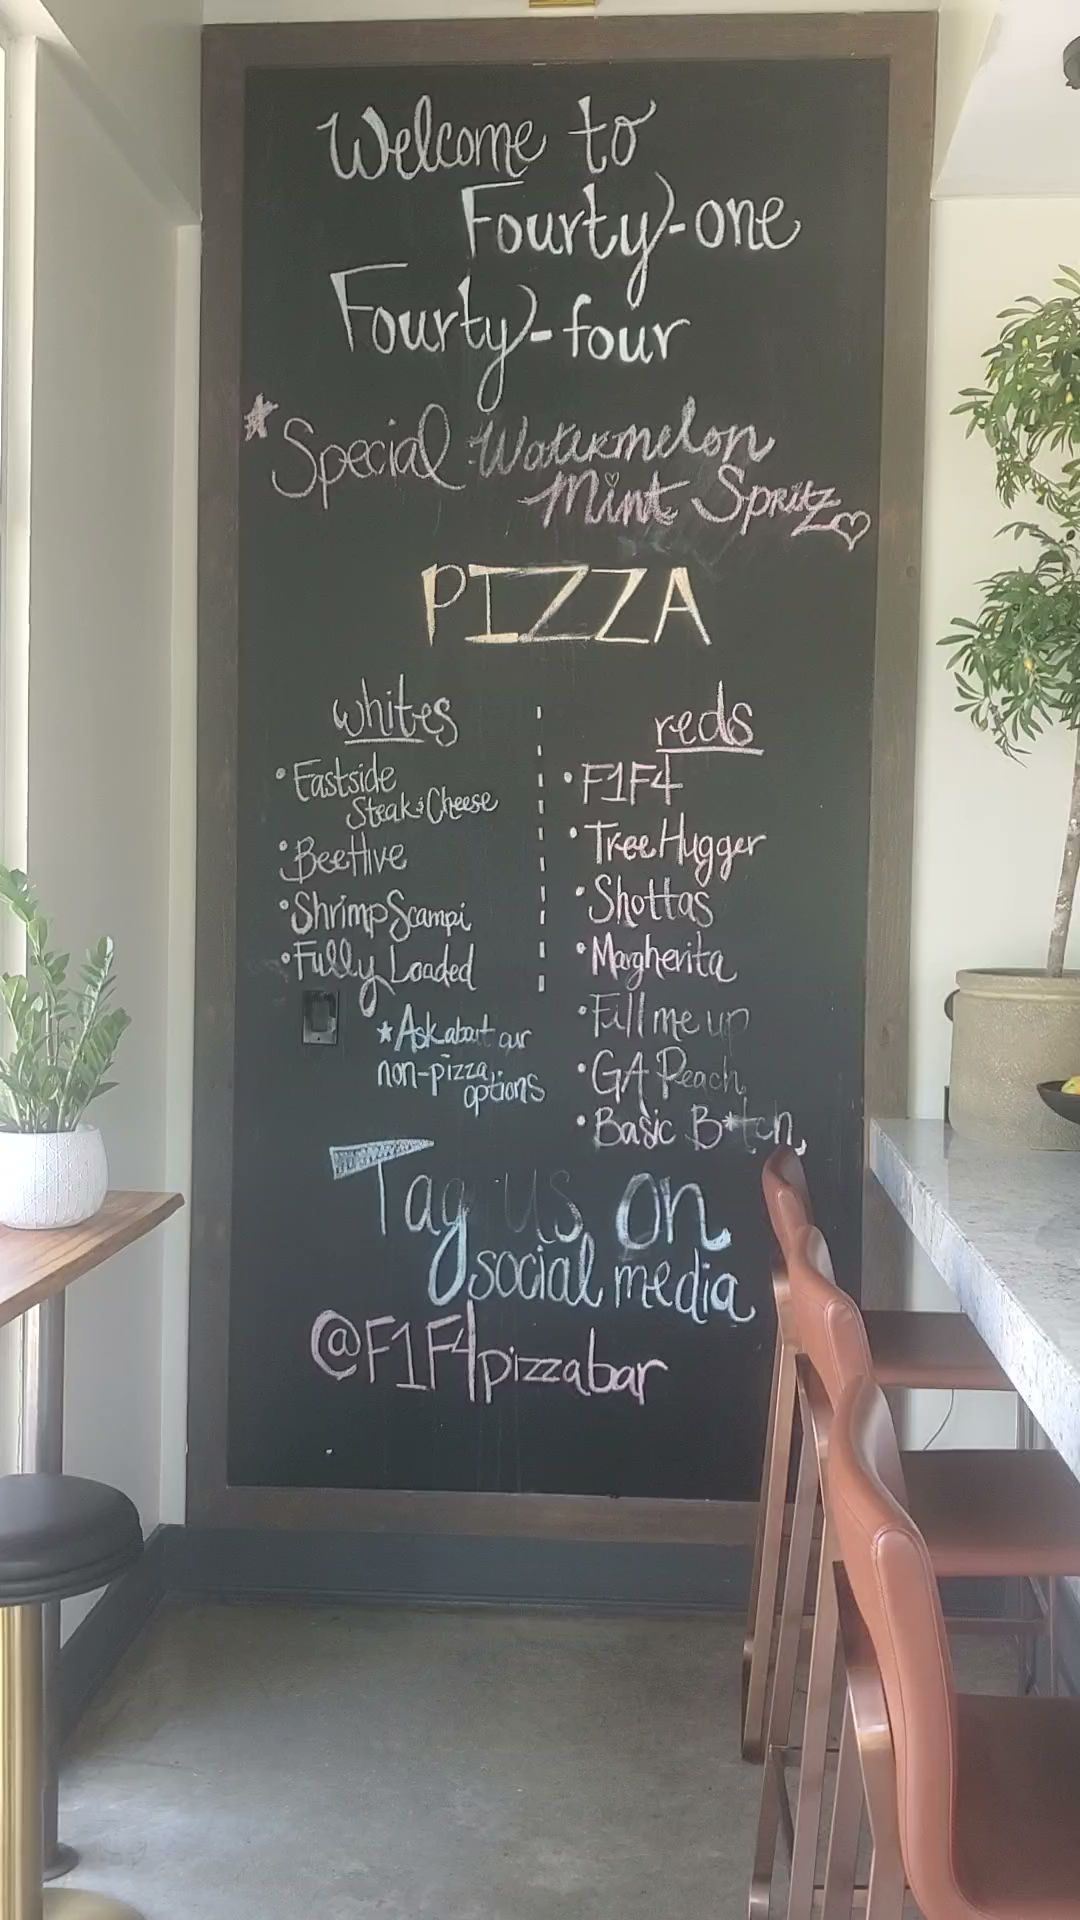 Welcome to
Fourty-one
Fourty-four
*Special Watermelon
Mint Spritz
PIZZA
whites
• Eastside
Steak & Cheese
• BeeHive
• Shrimp Scampi
• Fully Loaded
*Ask about our
non-pizza
options
reds
• F1F4
• Tree Hugger
• Shottas
• Margherita
• Fill me up
• GA Peach
• Basic B*tch
Tag us on
social media
@F1F4pizzabar